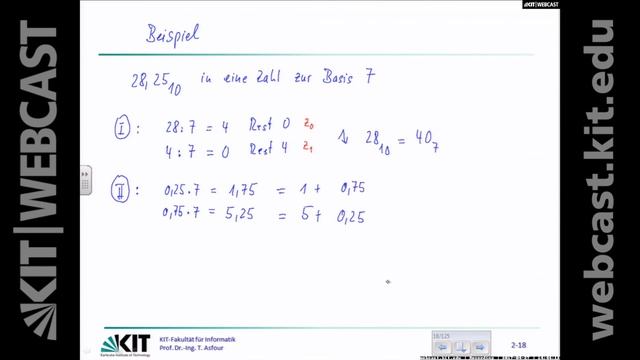 KIT WEBCAST
KIT | WEBCAST
webcast.kit.edu
Beispiel
28,25₁₀ in eine Zahl zur Basis 7
I : 28 : 7 = 4 Rest 0 z₀
4 : 7 = 0 Rest 4 z₁
↓ 28₁₀ = 40₇
II : 0,25 · 7 = 1,75 = 1 + 0,75
0,75 · 7 = 5,25 = 5 + 0,25
KIT
Karlsruhe Institute of Technology
KIT-Fakultät für Informatik
Prof. Dr.-Ing. T. Asfour
18/125
2-18